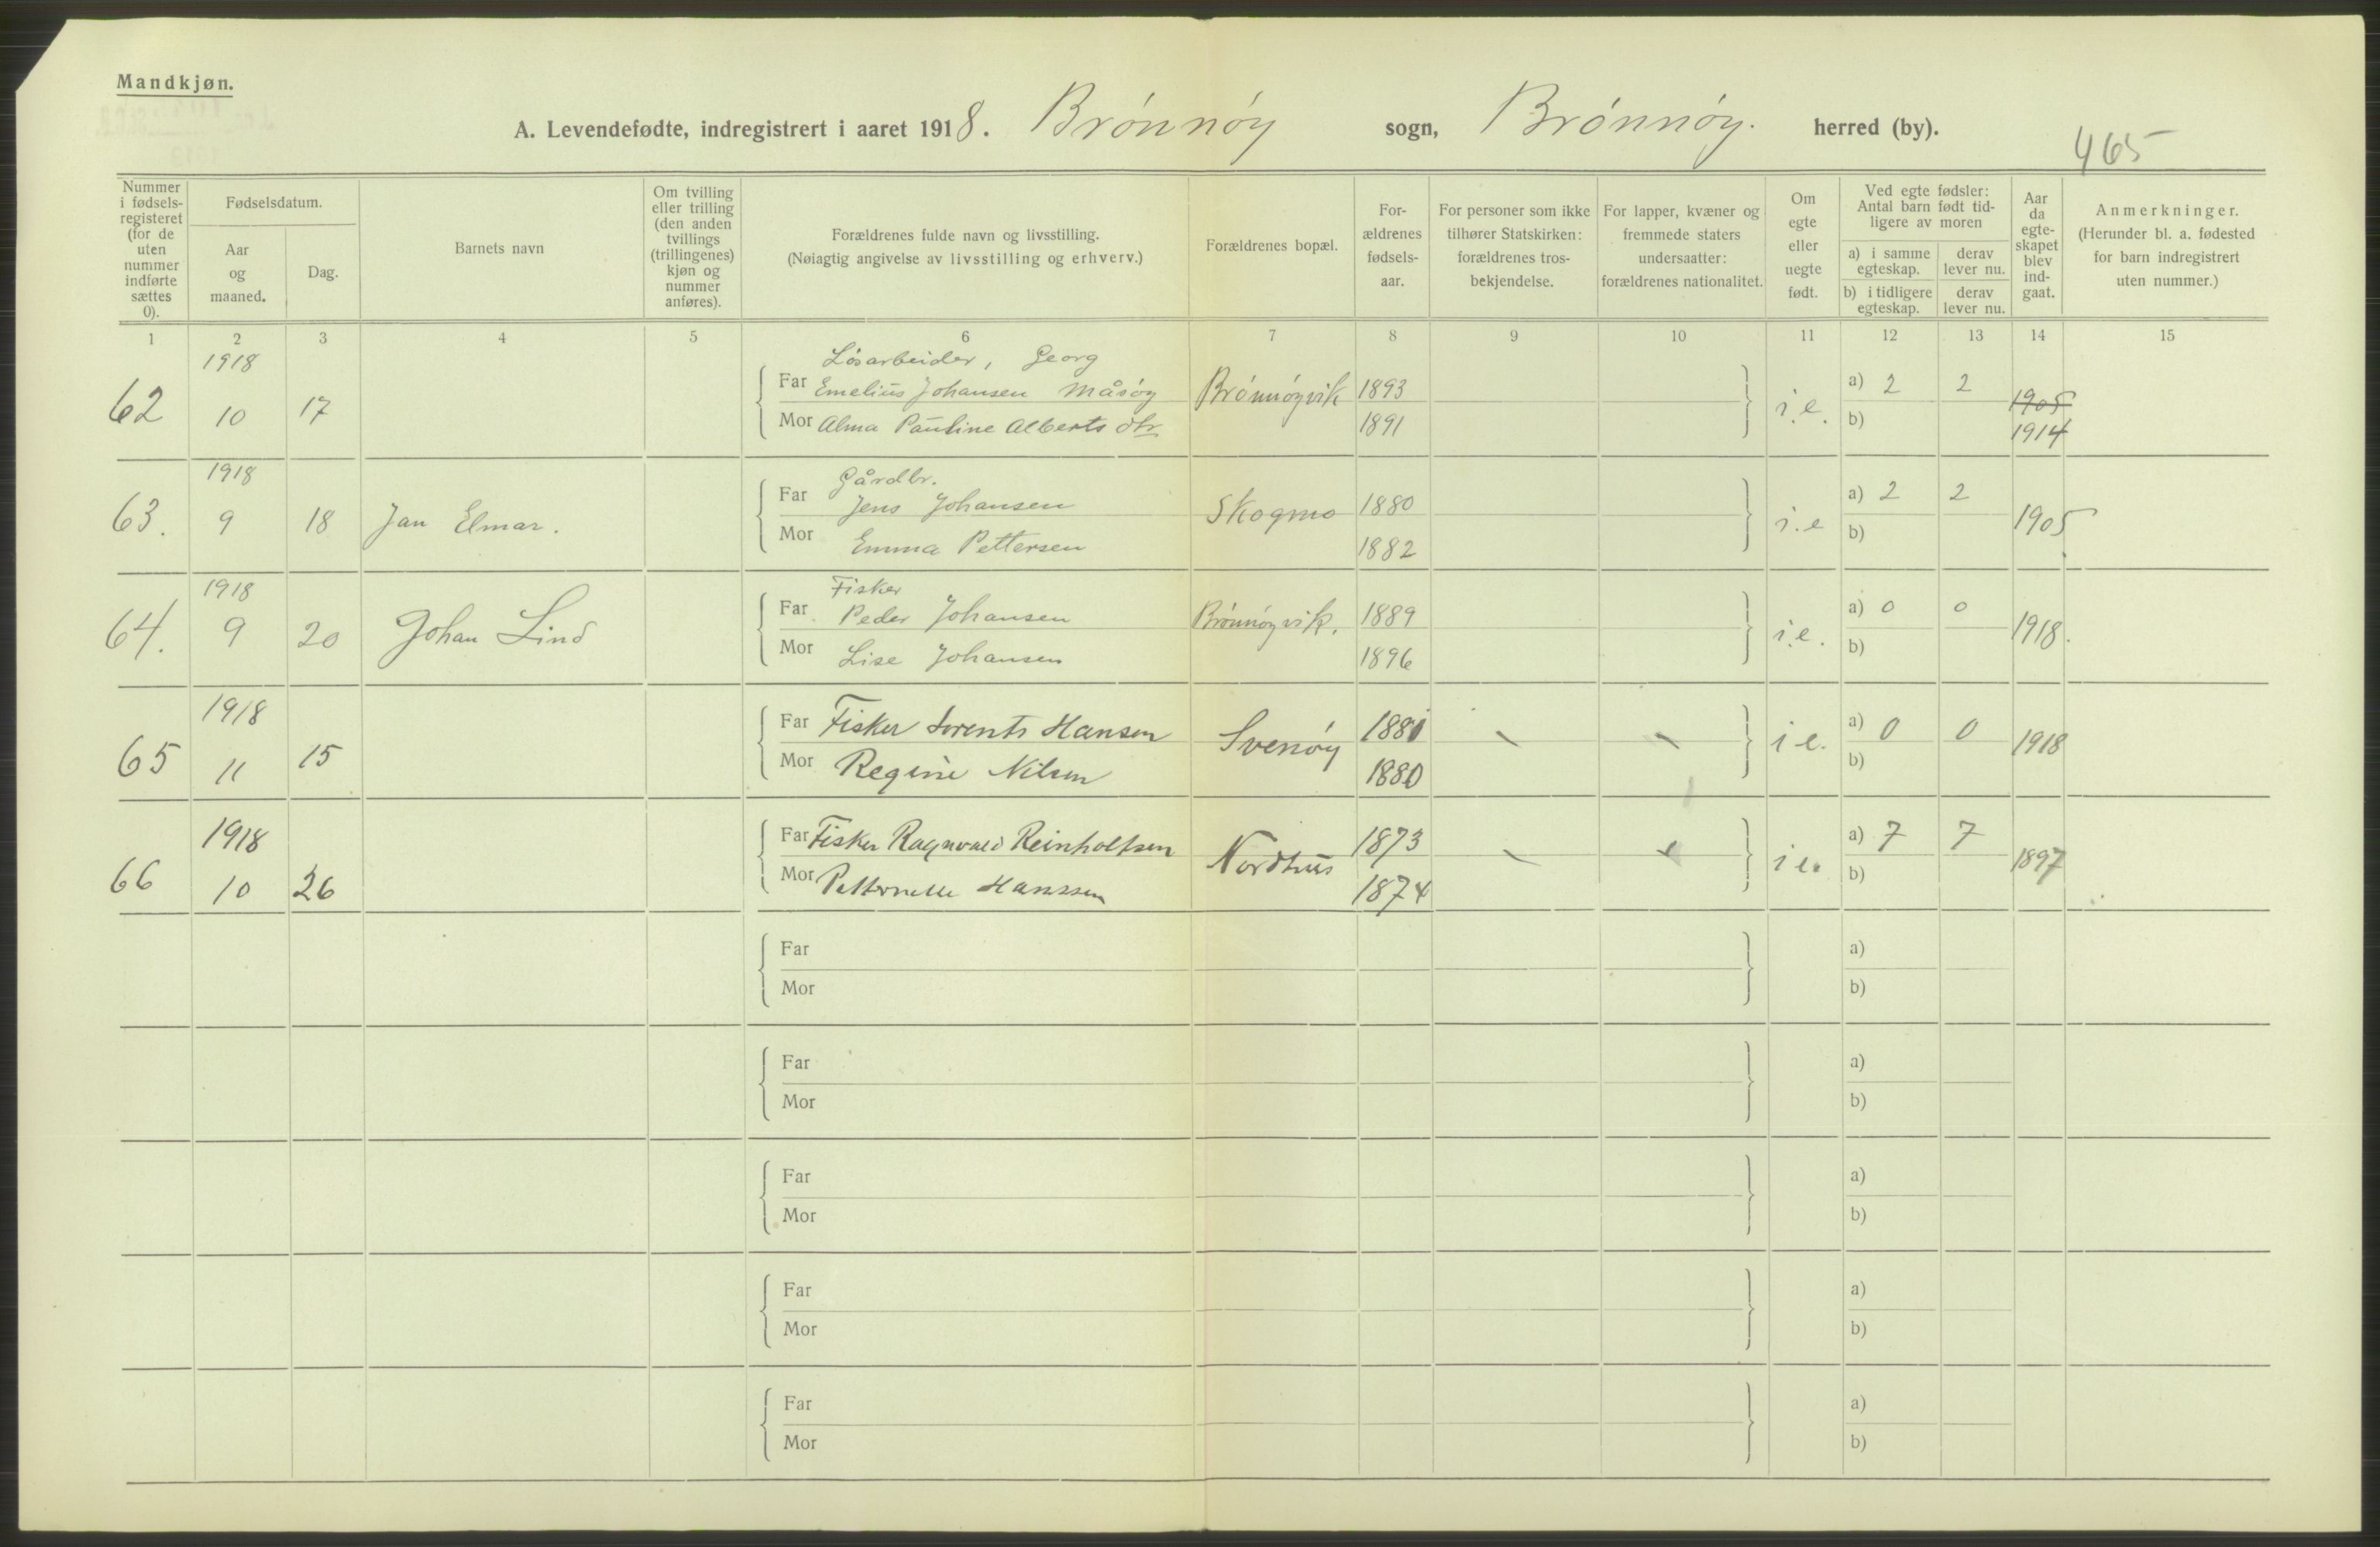 Mandkjøn.
A. Levendefødte, indregistrert i aaret 1918. Brönnöy sogn, Brönnöy. herred (by).
465
Nummer i fødsels-registeret (for de uten nummer indførte sættes 0).
Fødselsdatum.
Aar og maaned.
Dag.
Barnets navn
Om tvilling eller trilling (den anden tvillings (trillingenes) kjøn og nummer anføres).
Forældrenes fulde navn og livsstilling.
(Nøiagtig angivelse av livsstilling og erhverv.)
Forældrenes bopæl.
For-ældrenes fødsels-aar.
For personer som ikke tilhører Statskirken: forældrenes tros-bekjendelse.
For lapper, kvæner og fremmede staters undersaatter: forældrenes nationalitet.
Om egte eller uegte født.
Ved egte fødsler: Antal barn født tid-ligere av moren
a) i samme egteskap.
derav lever nu.
b) i tidligere egteskap.
derav lever nu.
Aar da egte-skapet blev ind-gaat.
Anmerkninger.
(Herunder bl. a. fødested for barn indregistrert uten nummer.)
1 2 3 4 5 6 7 8 9 10 11 12 13 14 15
1918 Lösarbeider, Georg
62 10 17 Far Emelius Johansen Måsöy Brönnöyvik 1893 i.e. a) 2 2 1905
Mor Alma Pauline Alberts dtr 1891 b) 1914
1918 Gårdbr.
63. 9 18 Jan Elmar. Far Jens Johansen Skogmo 1880 i.e a) 2 2 1905
Mor Emma Pettersen 1882 b)
1918 Fisker
64. 9 20 Johan Lind Far Peder Johansen Brönnöyvik. 1889 i.e. a) 0 0 1918.
Mor Lise Johansen 1896 b)
1918
65 11 15 Far Fisker Lorents Hansen Svenöy 1881 i e. a) 0 0 1918
Mor Regine Nilsen 1880 b)
1918
66 10 26 Far Fisker Ragnvald Reinholtsen Nordhus 1873 i e. a) 7 7 1897
Mor Petternelle Hanssen 1874 b)
Far a)
Mor b)
Far a)
Mor b)
Far a)
Mor b)
Far a)
Mor b)
Far a)
Mor b)